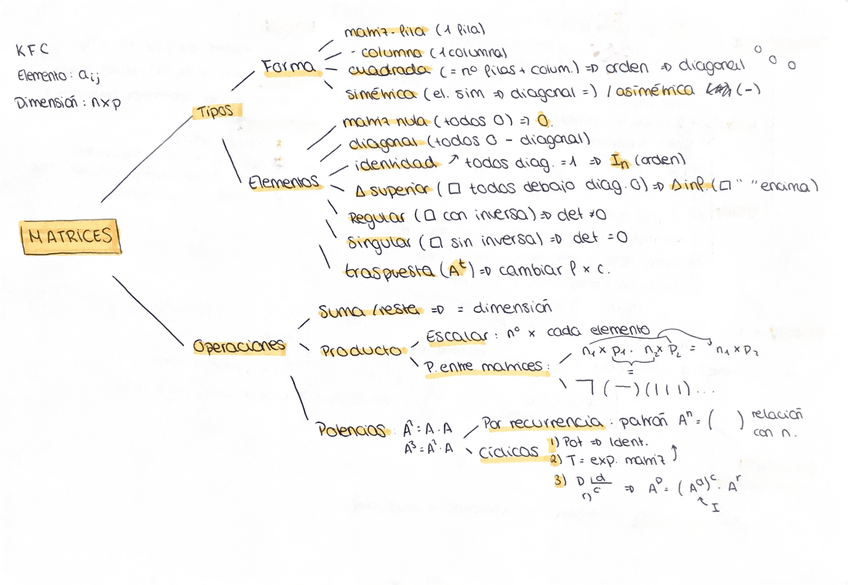 KFC
Elemento: aij
Dimensión: n×p
MATRICES
Tipos
Forma
matriz-fila (1 fila)
- columna (1 columna)
cuadrada (= nº filas + colum.) => orden => diagonal
simétrica (el. sim => diagonal =) / asimétrica (-)
Elementos
matriz nula (todos 0) => 0
diagonal (todos 0 - diagonal)
identidad ↗ todos diag. = 1 => In (orden)
Δ superior (□ todos debajo diag. 0) => Δ inf. (□ " " encima)
Regular (□ con inversa) => det ≠ 0
singular (□ sin inversa) => det = 0
traspuesta (Aᵗ) => cambiar f × c.
Operaciones
Suma / resta => = dimensión
Producto
Escalar: nº × cada elemento
P. entre matrices:
n₁ × p₁ · n₂ × p₂ = n₁ × p₂
=
¬ (—) (|||) ...
Potencias A² = A · A
A³ = A² · A
Por recurrencia: patrón Aⁿ = ( ) relación
con n.
Cíclicas
1) Pot => Ident.
2) T = exp. matriz
3) D |d
r c => Aᴰ = (Aᵈ)ᶜ · Aʳ
I